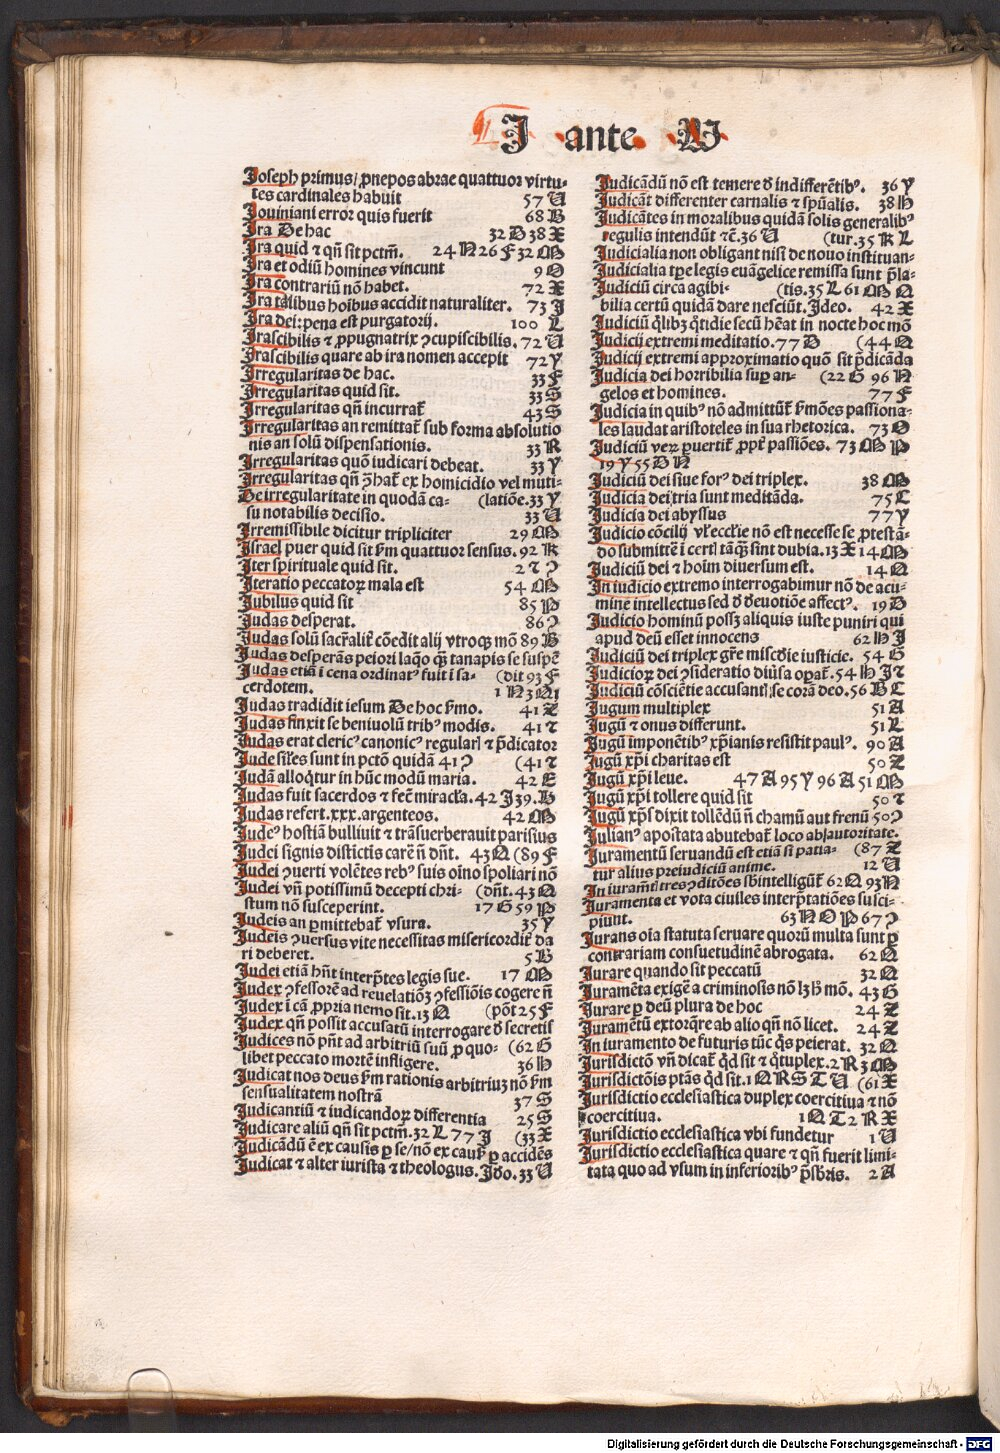 J ante U
Joseph primus/ ꝓnepos abrae quattuor virtu⸗
tes cardinales habuit 57 U
Jouiniani error quis fuerit 68 B
Jra De hac 32 D 38 X
Jra quid ⁊ qn̄ sit pctm̄. 24 N 26 F 32 M
Jra et odiū homines vincunt 9 O
Jra contrariū nō habet. 72 X
Jra talibus hoībus accidit naturaliter. 73 J
Jra dei: pena est purgatorij. 100 L
Jrascibilis ⁊ ꝓpugnatrix ꝯcupiscibilis. 72 U
Jrascibilis quare ab ira nomen accepit 72 Y
Jrregularitas de hac. 33 F
Jrregularitas quid sit. 33 S
Jrregularitas qn̄ incurrat̄ 43 S
Jrregularitas an remittat̄ sub forma absolutio
nis an solū dispensationis. 33 R
Jrregularitas quō iudicari debeat. 33 Y
Jrregularitas qn̄ ꝯhat̄ ex homicidio vel muti⸗
De irregularitate in quodā ca⸗ (latiōe. 33 Y
su notabilis decisio. 33 U
Jrremissibile dicitur tripliciter 29 M
Jsrael puer quid sit ẜm quattuor sensus. 92 K
Jter spirituale quid sit. 2 ⁊ ꝯ
Jteratio peccatoꝝ mala est 54 M
Jubilus quid sit 85 P
Judas desperat. 86 ꝯ
Judas solū sacr̄alit̄ cōedit alij vtroqꝫ mō 89 B
Judas desperās peiori laq̄o q̄ꝫ tanapis se suspē
Judas etiā ī cena ordinatꝰ fuit ī sa⸗ (dit 93 F
cerdotem. 1 N 3 N
Judas tradidit iesum De hoc ẜmo. 41 Z
Judas finxit se beniuolū tribꝰ modis. 41 ⁊
Judas erat clericꝰ canonicꝰ regularꝭ ⁊ p̄dicator
Jude siles sunt in pctō quidā 41 ꝯ (41 ⁊
Judā alloq̄tur in hūc modū maria. 42 E
Judas fuit sacerdos ⁊ fec̄ miracła. 42 J 39. H
Judas refert .xxx. argenteos. 42 M
Judeꝰ hostiā bulliuit ⁊ trāsuerberauit parisius
Judei signis distictis carēn̄ dn̄t. 43 Q (89 F
Judei ꝯuerti volētes rebꝰ suis oīno spoliari nō
Judei vn̄ potissimū decepti chri⸗ (dn̄t. 43 Q
stum nō susceperint. 17 G 59 P
Judeis an ꝑmittebat̄ vsura. 35 Y
Judeis ꝯuersus vite necessitas misericordit̄ da
ri deberet. 5 B
Judei etiā hn̄t interp̄tes legis sue. 17 M
Judex ꝯfessorē ad reuelatiōꝫ ꝯfessiōis cogere n̄
Judex ī cā ꝓpria nemo sit. 13 Q (pōt 25 F
Judex qn̄ possit accusatū interrogare ð secretis
Judices nō pn̄t ad arbitriū suū ꝓ quo⸗ (62 G
libet peccato mortē infligere. 36 H
Judicat nos deus ẜm rationis arbitriuꝫ nō ẜm
sensualitatem nostrā 37 S
Judicantiū ⁊ iudicandoꝝ differentia 25 S
Judicare aliū qn̄ sit pctm̄. 32 L 77 J (33 X
Judicādū ē ex causis ꝑ se/ nō ex cauẜ ꝑ accidēs
Judicat ⁊ alter iurista ⁊ theologus. Jdo. 33 U
Judicādū nō est temere ð indifferētibꝰ. 36 Y
Judicāt differenter carnalis ⁊ sp̄ualis. 38 H
Judicātes in moralibus quidā solis generalibꝰ
regulis intendūt ⁊c̄. 36 U (tur. 35 K L
Judicialia non obligant nisi de nouo instituan⸗
Judicialia tp̄e legis euāgelice remissa sunt p̄la⸗
Judiciū circa agibi⸗ (tis. 35 L 61 M Q
bilia certū quidā dare nesciūt. Jdeo. 42 X
Judiciū q̄libꝫ q̄tidie secū hēat in nocte hoc mō
Judicij extremi meditatio. 77 D (44 Q
Judicij extremi approximatio quō sit p̄dicāda
Judicia dei horribilia suꝑ an⸗ (22 G 96 N
gelos et homines. 77 F
Judicia in quibꝰ nō admittūt̄ ẜmōes passiona⸗
les laudat aristoteles in sua rhetorica. 73 O
Judiciū veꝝ ꝑuertit̄ ꝓpt̄ passiōes. 73 M P
19 Y 55 D N
Judiciū dei siue forꝰ dei triplex. 38 M
Judicia dei tria sunt meditāda. 75 C
Judicia dei abyssus 77 Y
Judicio cōcilij vl̄ eccłie nō est necesse se ꝓtestā⸗
do submittē ī certꝭ tāq̄ꝫ sint dubia. 13 X 14 M
Judiciū dei ⁊ hoīm diuersum est. 14 Q
Jn iudicio extremo interrogabimur nō de acu⸗
mine intellectus sed ð deuotiōe affectꝰ. 19 D
Judicio hominū possꝫ aliquis iuste puniri qui
apud deū esset innocens 62 H J
Judiciū dei triplex gr̄e miscdie iusticie. 54 G
Judicioꝝ dei ꝯsideratio diūsa oꝑat̄. 54 H J ⁊
Judiciū cōsciētie accusantꝭ se corā deo. 56 B C
Jugum multiplex 51 A
Jugū ⁊ onus differunt. 51 L
Jugū imponētibꝰ xp̄ianis resistit paulꝰ. 90 A
Jugū xp̄i charitas est 50 Z
Jugū xp̄i leue. 47 A 95 Y 96 A 51 M
Jugū xp̄i tollere quid sit 50 ⁊
Jugū xp̄s dixit tollēdū n̄ chamū aut frenū 50 ꝯ
Julianꝰ apostata abutebat̄ loco abꝭ autoritate.
Juramentū seruandū est etiā si patia⸗ (87 Z
tur alius preiudiciū anime. 12 U
Jn iuram̄to tres ꝯditōes sbintelligūt̄ 62 Q 93 N
Juramenta et vota ciuiles interp̄tatiōes susci⸗
piunt. 63 N O P 67 ꝯ
Jurans oīa statuta seruare quorū multa sunt ꝑ
contrariam consuetudinē abrogata. 62 Q
Jurare quando sit peccatū 32 Q
Juramēta exigē a criminosis nō lꝫ hͦ mō. 43 G
Jurare ꝑ deū plura de hoc 24 Z
Juramētū extorq̄re ab alio qn̄ nō licet. 24 Z
Jn iuramento de futuris tūc q̄s peierat. 32 Q
Jurisdictō vn̄ dicat̄ q̄d sit ⁊ q̄tuplex. 2 R 3 M
Jurisdictōis ptās q̄d sit. 1 Q R S T U (61 X
Jurisdictio ecclesiastica duplex coercitiua ⁊ nō
coercitiua. 1 Q T 2 R X
Jurisdictio ecclesiastica vbi fundetur 1 U
Jurisdictio ecclesiastica quare ⁊ qn̄ fuerit limi⸗
tata quo ad vsum in inferioribꝰ p̄sbris. 2 A
Digitalisierung gefördert durch die Deutsche Forschungsgemeinschaft - DFG